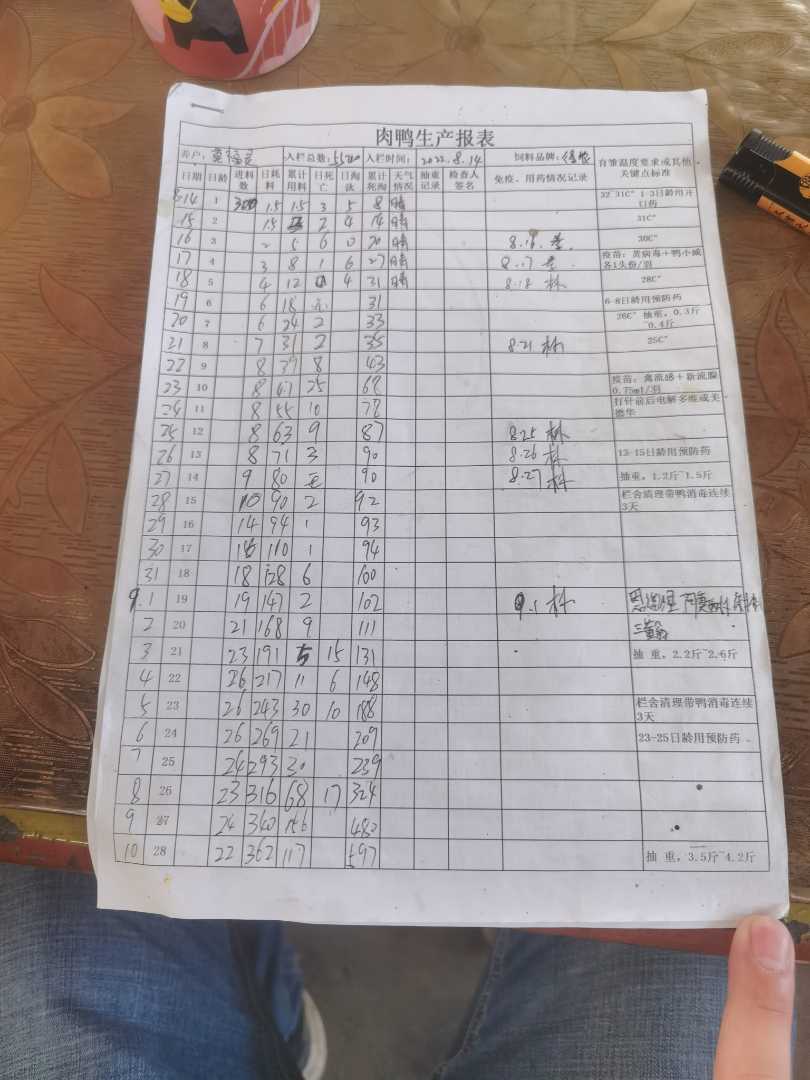 肉鸭生产报表
养户: 入栏总数:5520 入栏时间: 2022.8.14 饲料品牌: 育雏温度要求或其他关键点标准
日期 日龄 进料数 日耗料 累计用料 日死亡 日淘汰 累计死淘 天气情况 抽重记录 检查人签名 免疫、用药情况记录
8.14 1 300 1.5 1.5 3 5 8 晴 32~31C° 1-3日龄用开口药
15 2 1.5 2 4 14 晴 31C°
16 3 2 5 6 0 20 晴 30C°
17 4 3 8 1 6 27 晴 8.17 疫苗：黄病毒+鸭小减各1头份/羽
18 5 4 12 4 31 晴 8.18 林 28C°
19 6 6 18 无 31 6-8日龄用预防药
20 7 6 24 2 33 26C° 抽重，0.3斤~0.4斤
21 8 7 31 2 35 8.21 林 25C°
22 9 8 39 8 43
23 10 8 47 25 68 疫苗：禽流感+新流腺0.75ml/羽
24 11 8 55 10 78 打针前后电解多维或美德华
25 12 8 63 9 87 8.25 林
26 13 8 71 3 90 8.26 林 13-15日龄用预防药
27 14 9 80 无 90 8.27 林 抽重，1.2斤~1.5斤
28 15 10 90 2 92 栏舍清理带鸭消毒连续3天
29 16 14 94 1 93
30 17 16 110 1 94
31 18 18 128 6 100
9.1 19 19 147 2 102 9.1 林
2 20 21 168 9 111
3 21 23 191 5 15 131 抽 重，2.2斤~2.6斤
4 22 26 217 11 6 148
5 23 26 243 30 10 188 栏舍清理带鸭消毒连续3天
6 24 26 269 21 209 23-25日龄用预防药
7 25 24 293 30 239
8 26 23 316 68 17 324
9 27 24 340 156 480
10 28 22 362 117 597 抽 重，3.5斤~4.2斤